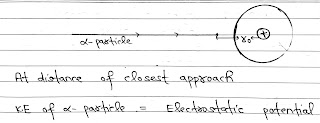 α-particle
r₀
+
At distance of closest approach
K.E of α-particle = Electrostatic potential